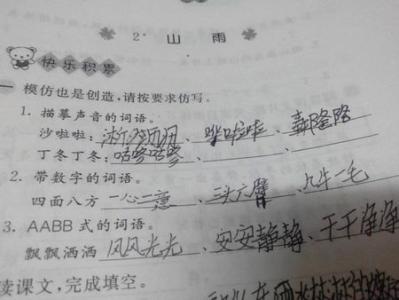 2* 山 雨
快乐积累
一 模仿也是创造,请按要求仿写。
1. 描摹声音的词语。
沙啦啦: 淅沥沥、哗啦啦、轰隆隆
丁冬丁冬: 咕咚咕咚、
2. 带数字的词语。
四面八方 一心一意、三头六臂、九牛一毛
3. AABB 式的词语。
飘飘洒洒 风风光光、安安静静、干干净净
读课文,完成填空。